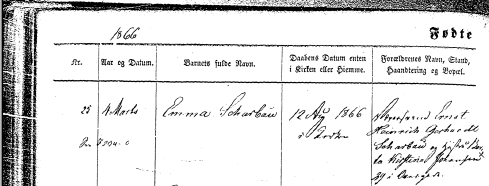 1866
Fødte
Nr.
Aar og Datum.
Barnets fulde Navn.
Daabens Datum enten
i Kirken eller Hjemme.
Forældrenes Navn, Stand,
Haandtering og Bopæl.
25
4 Marts
Emma Scharbau
12 Aug 1866
i Kirken
Ernst
Heinrich Gerhardt
Scharbau og Hustru
Kirstine Johansen